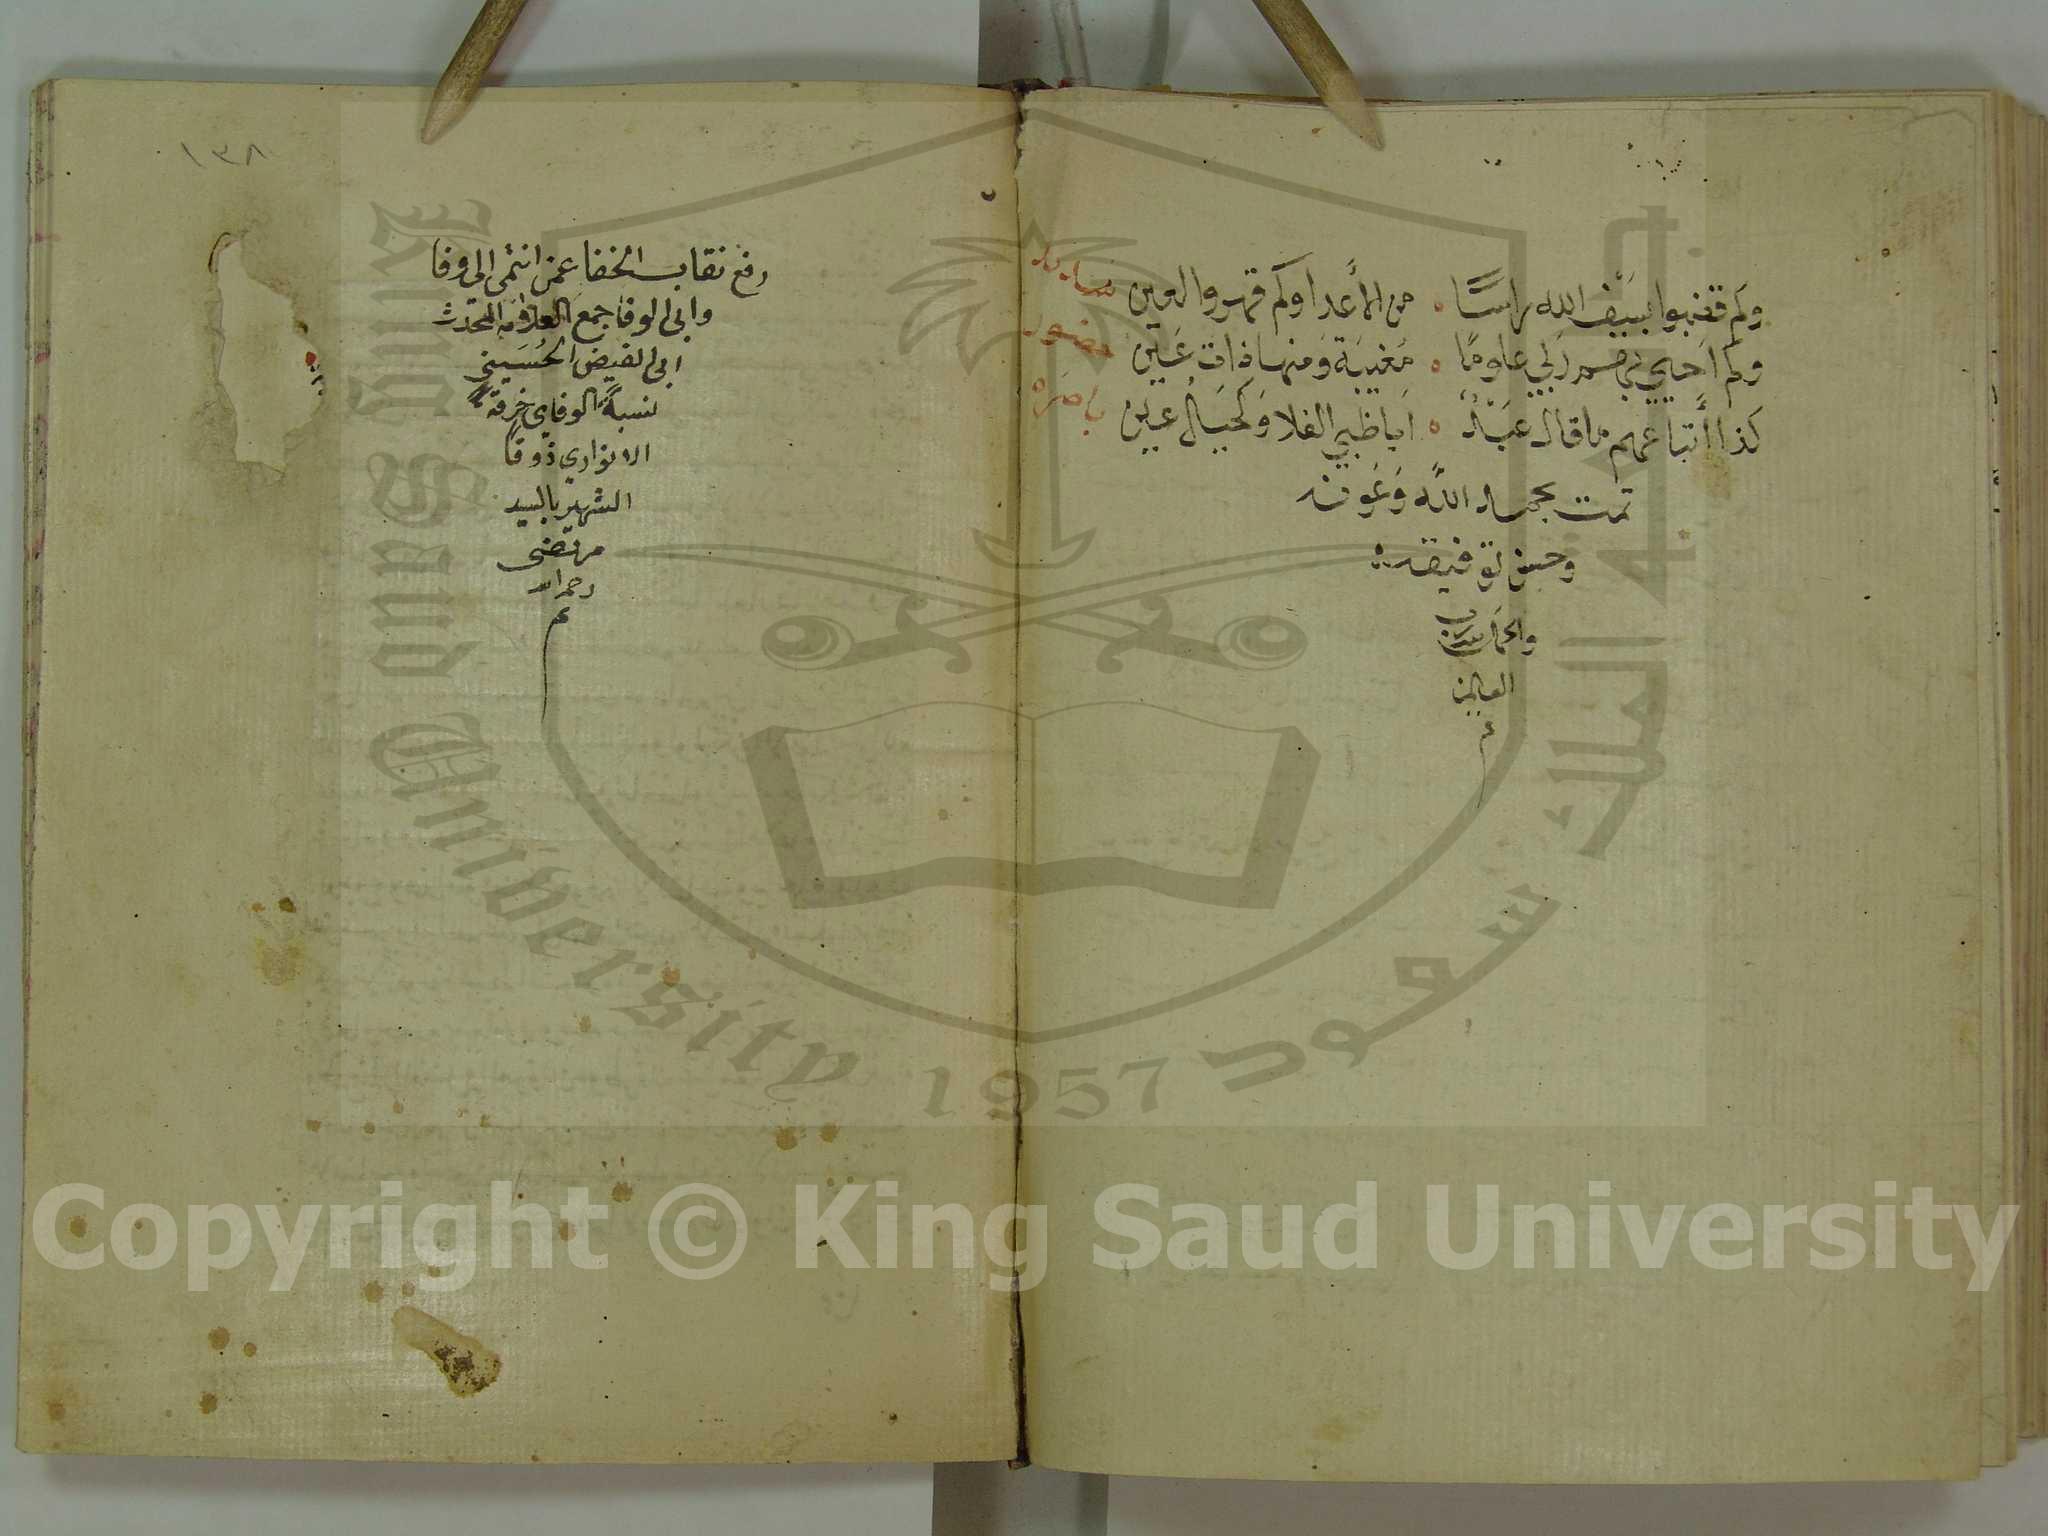 وكم قضبوا بسيف الله راسا ° من الأعدا وكم قهروا لعين
وكم احيى ربي علوما ° مغيبة ومنها ذات عين
كذا أتباعهم ما قال عبد ° اياظبي الفلا وكحيل عين
تمت بحمد الله وعونه
وحسن توفيقه
والحمد لله رب
العالمين
تم
١٣٨
رفع نقاب الخفا عمن انتمى الى وفا
وابى الوفا جمع العلامه المحدث
ابى الفيض الحسيني
نسبة الوفاي خرقة
الانواري ذوقا
الشهير بالسيد
مرتضى
رحمه الله
تم
King Saud University
1957
جامعة الملك سعود
Copyright © King Saud University